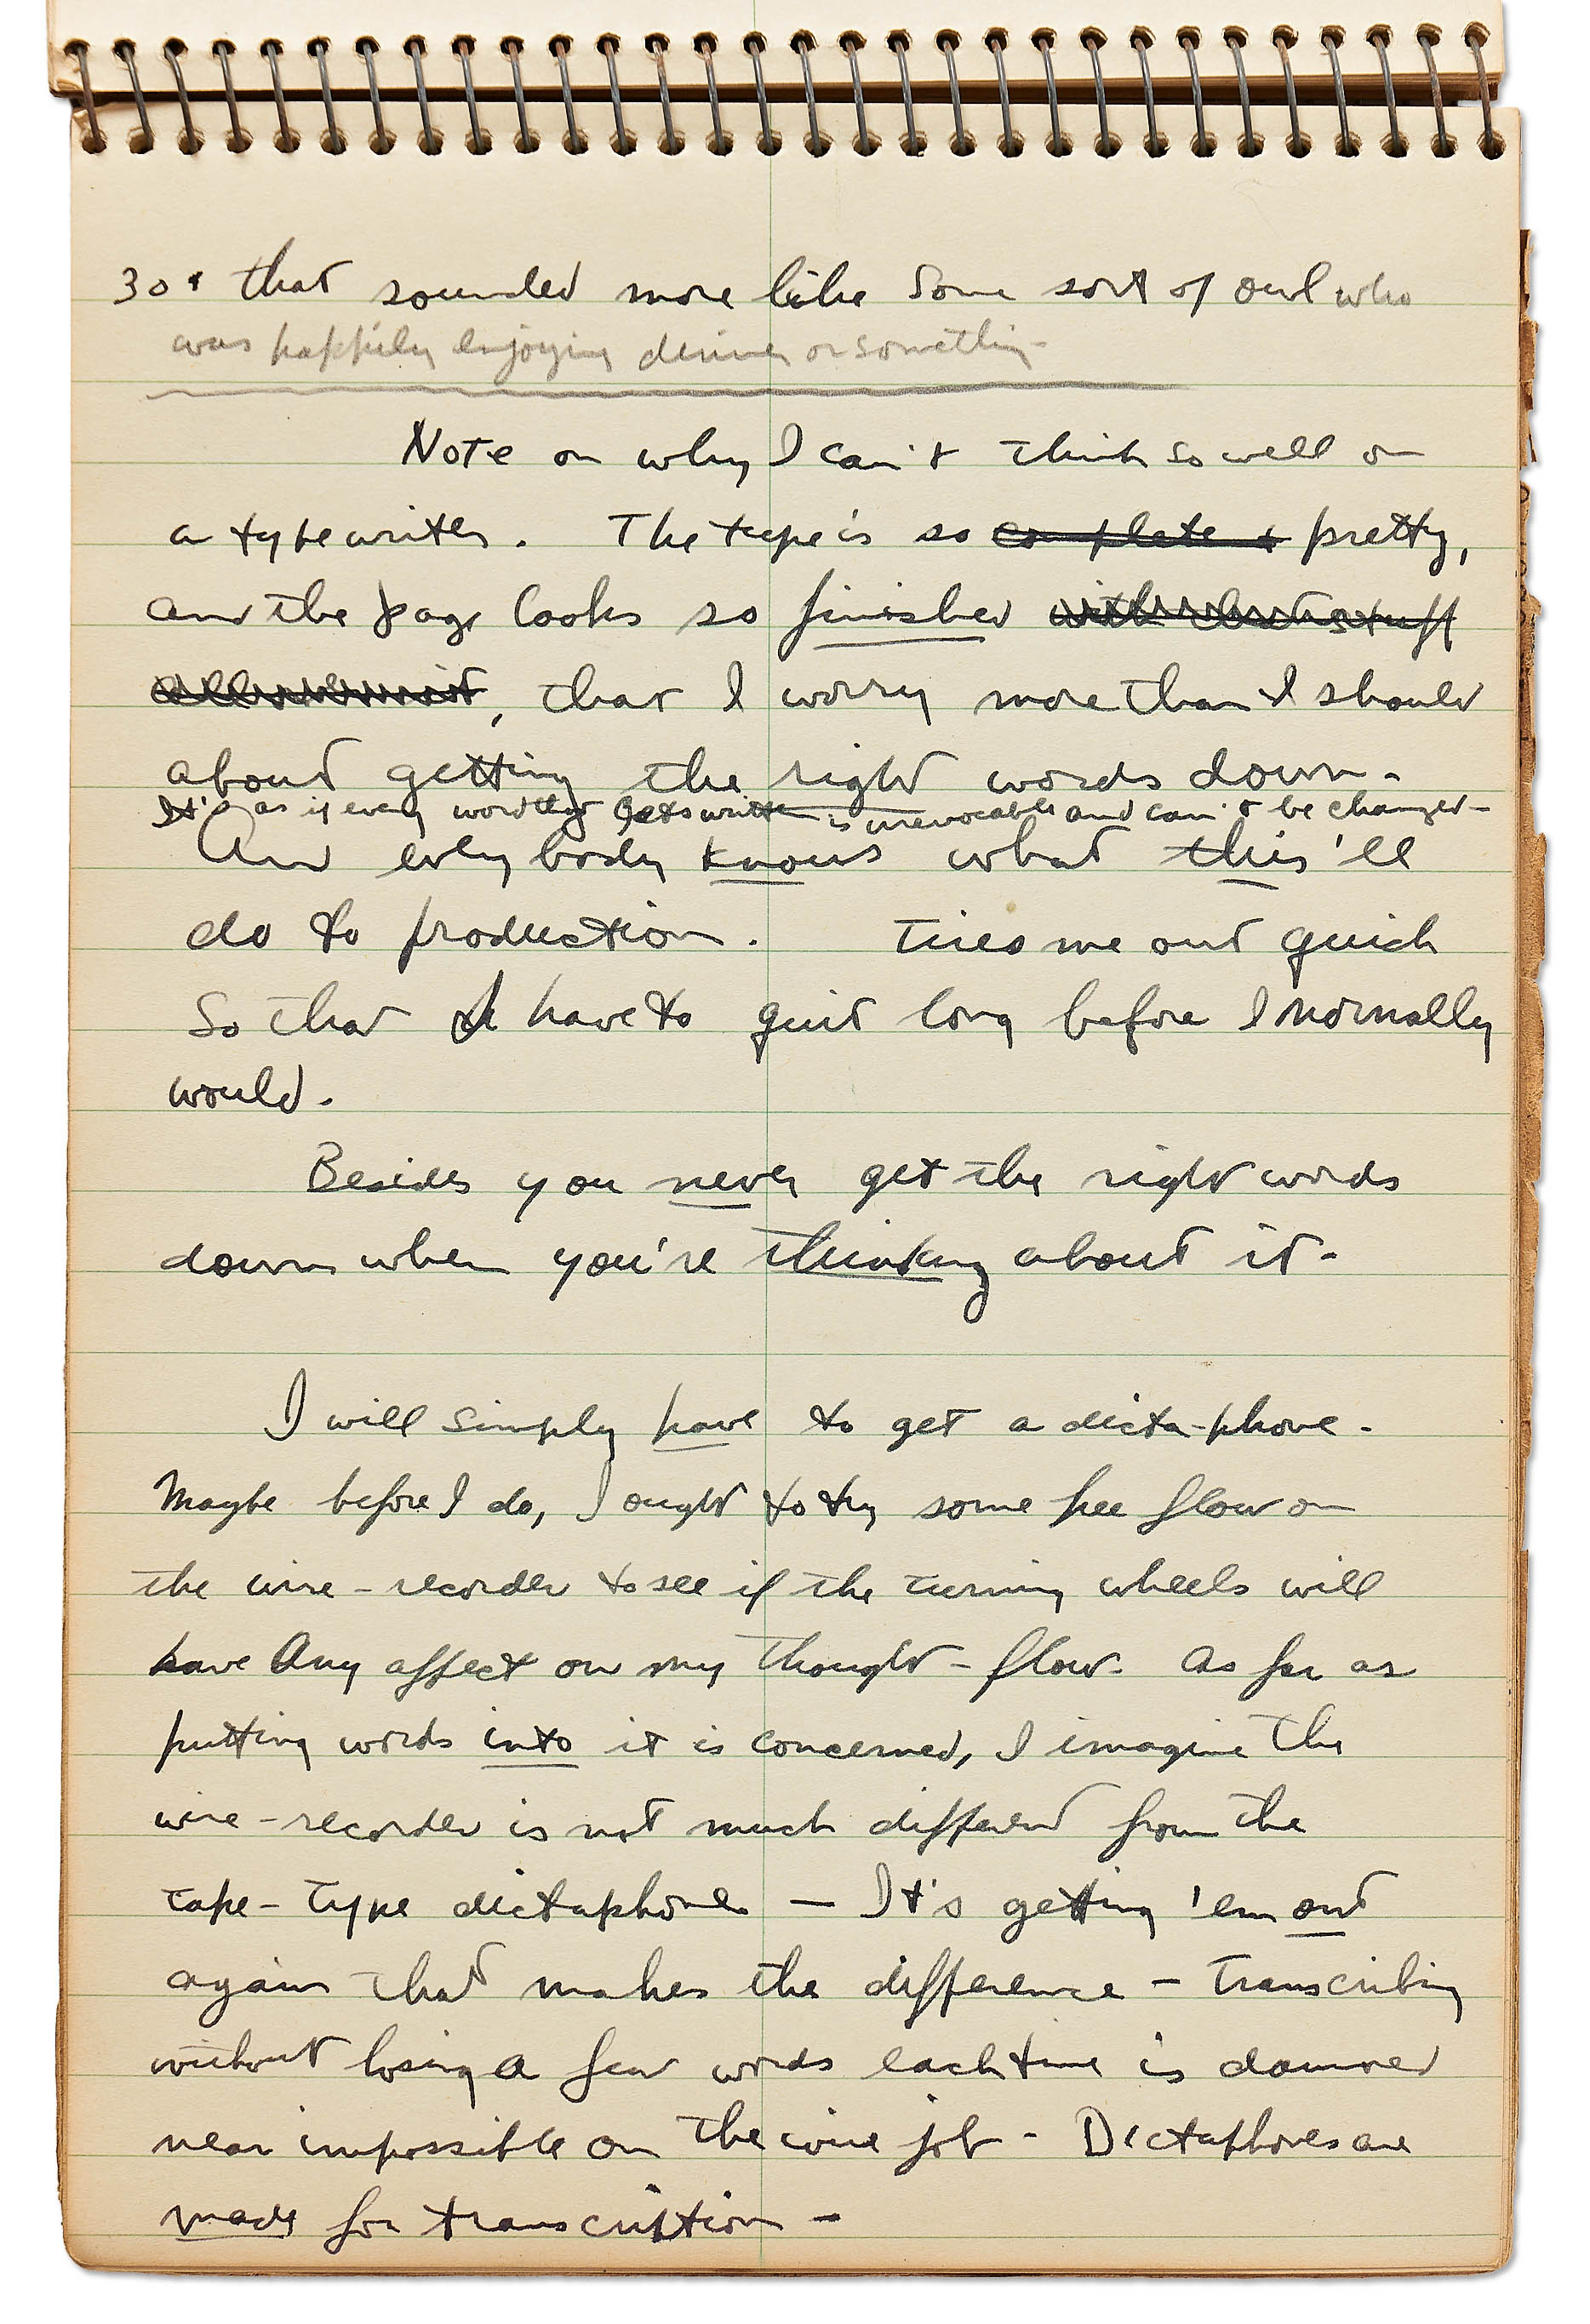 30. that sounded more like some sort of owl who
was happily enjoying dinner or something
Note on why I can't think so well on
a typewriter. The type is so complete & pretty,
and the page looks so finished with
, that I worry more than I should
about getting the right words down.
It's as if every word that gets written is irrevocable and can't be changed-
And everybody knows what this'll
do to production. Tires me out quick
So that I have to quit long before I normally
would.
Besides you never get the right words
down when you're thinking about it-
I will simply have to get a dicta-phone.
Maybe before I do, I ought to try some free flow on
the wire-recorder to see if the turning wheels will
have any affect on my thought-flow. As far as
putting words into it is concerned, I imagine the
wire-recorder is not much different from the
tape-type dictaphone — It's getting 'em out
again that makes the difference - transcribing
without losing a few words each time is damned
near impossible on the wire job - Dictaphones are
made for transcription -